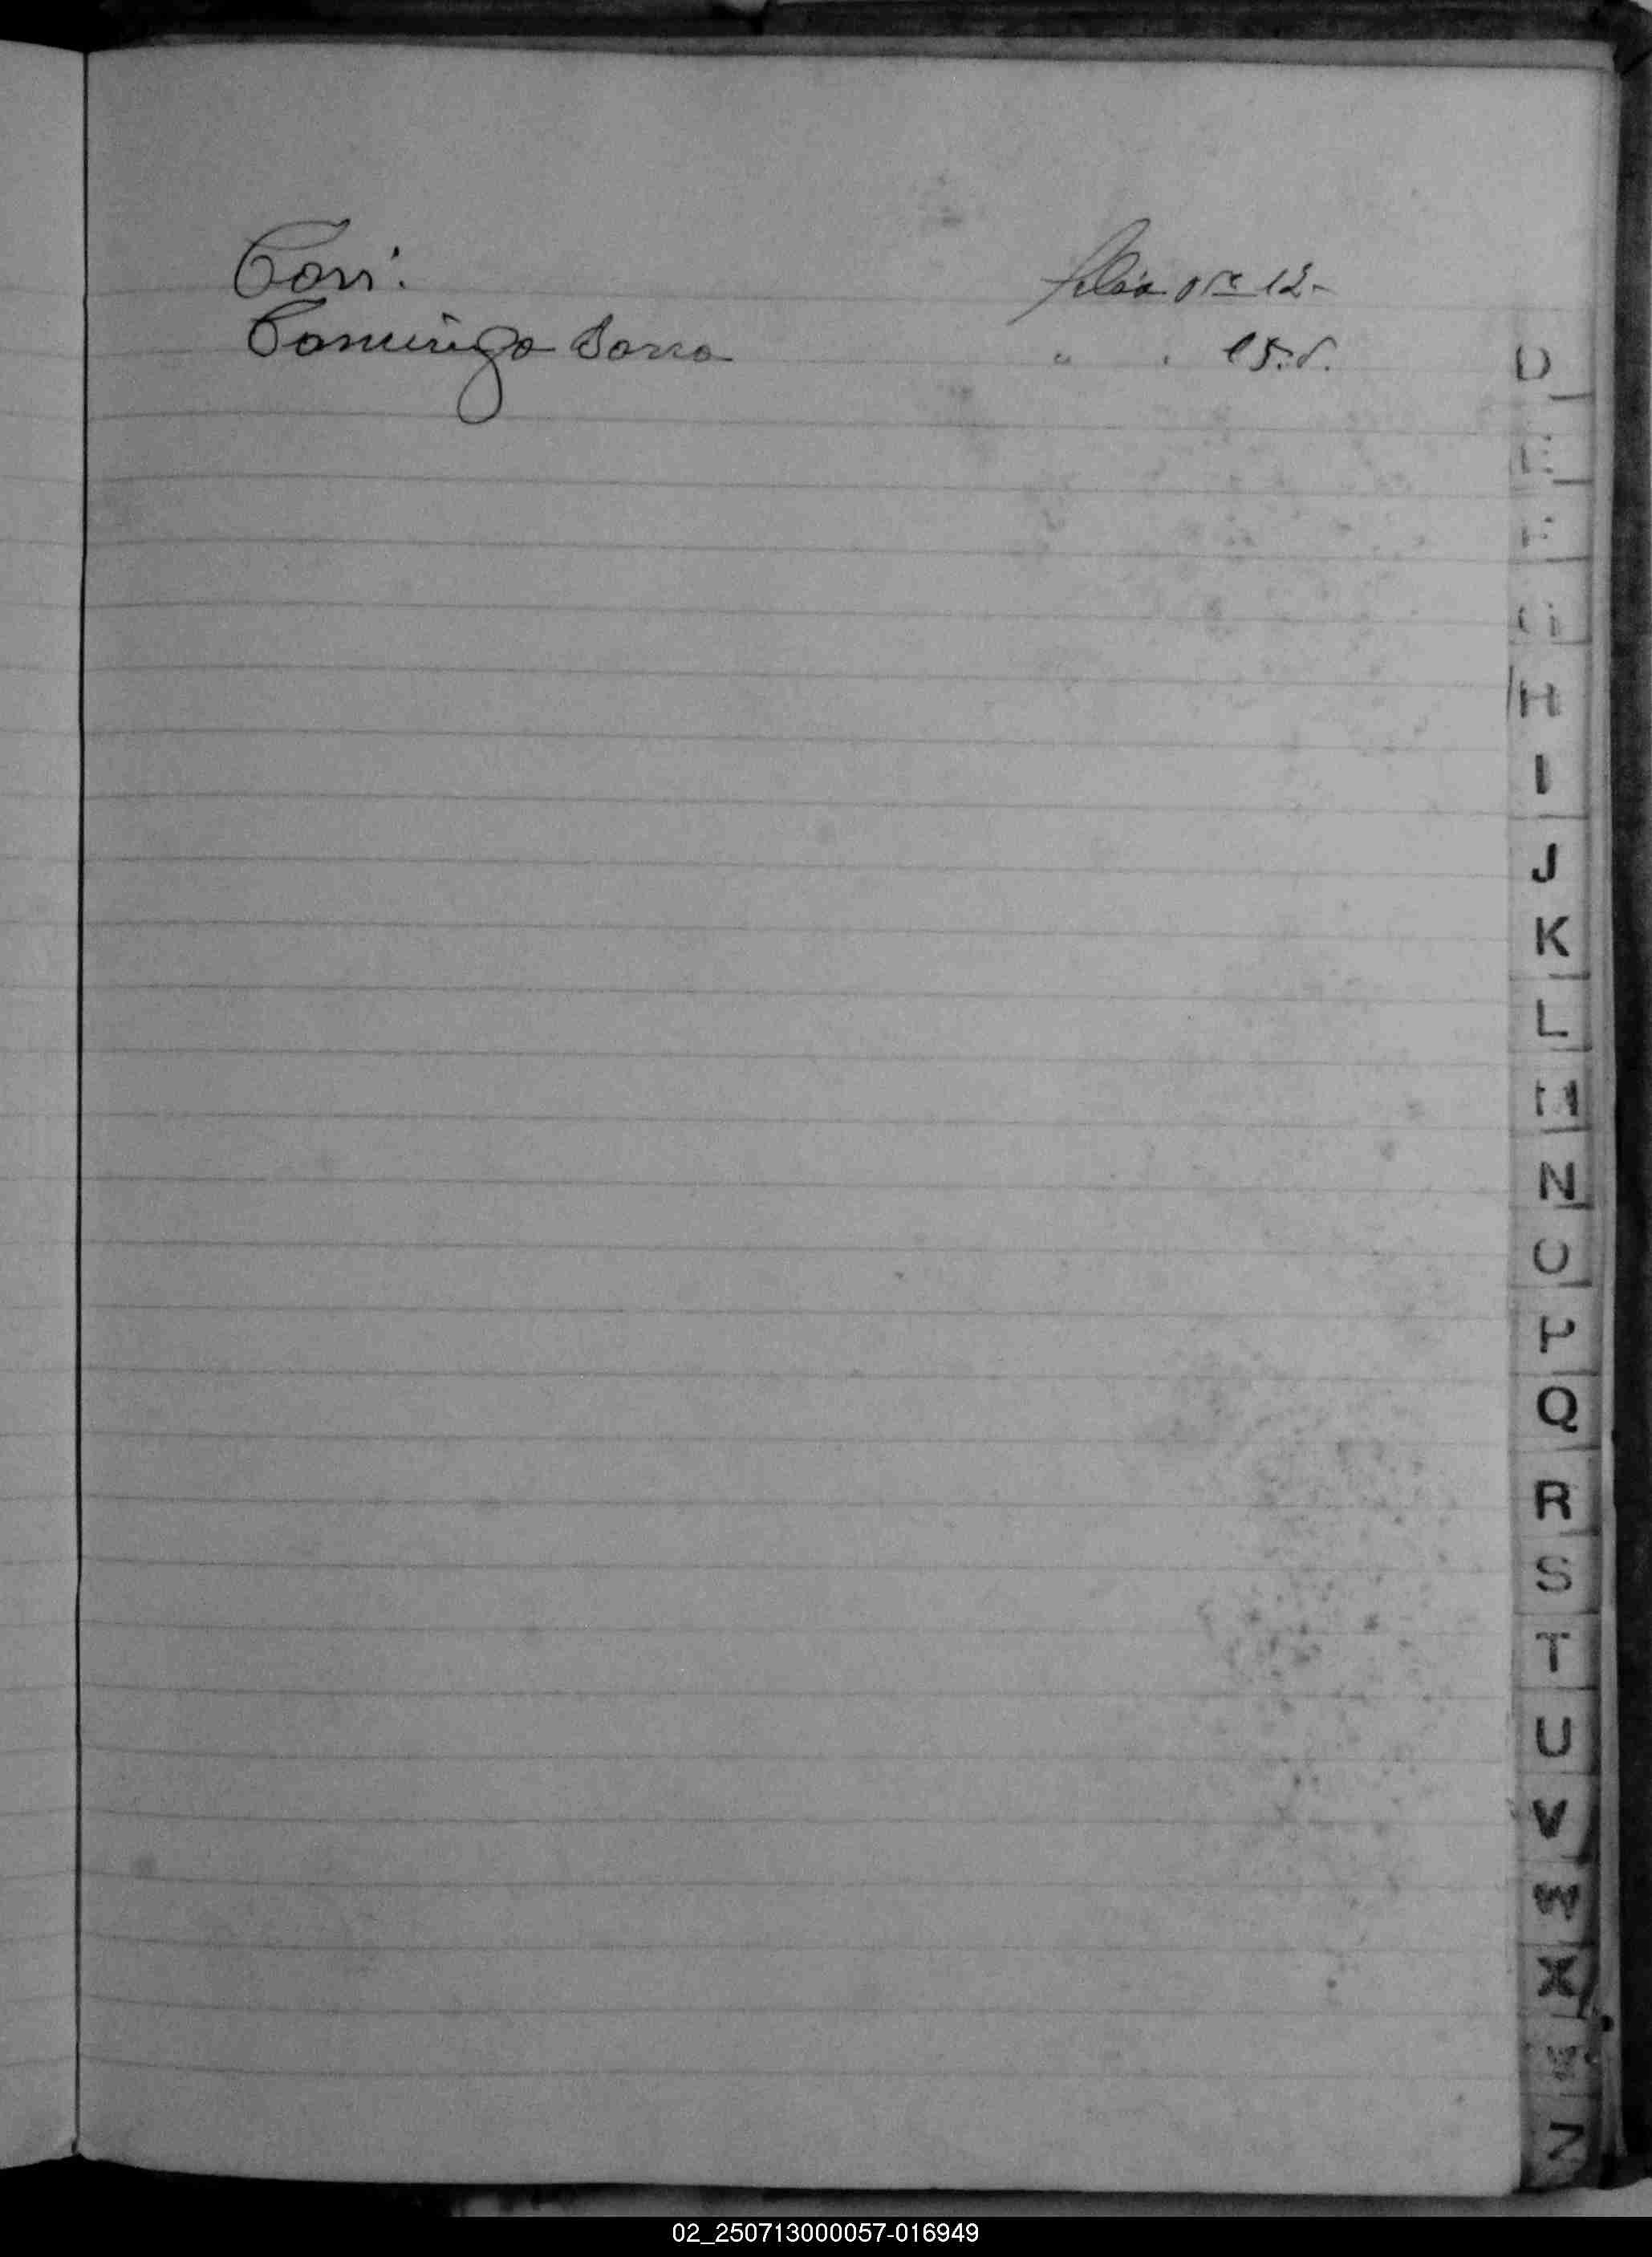 Dori.
Domingo Barra
folio Nro 12-
" " 15.
D
E
F
G
H
I
J
K
L
M
N
O
P
Q
R
S
T
U
V
W
X
Z
02_250713000057-016949